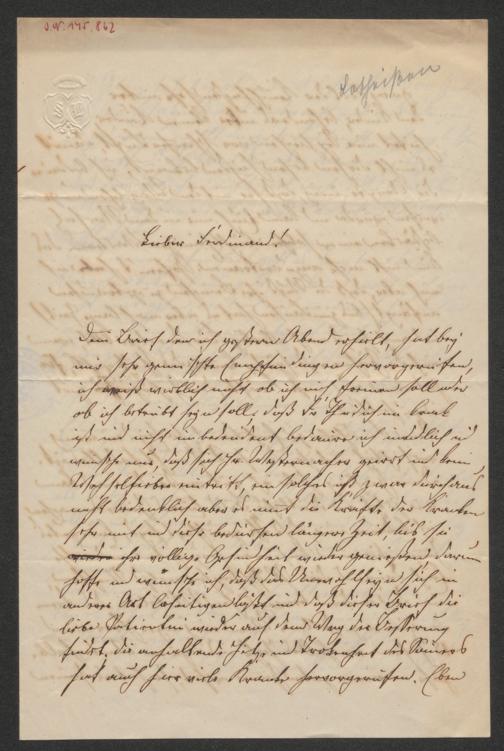 J.N. 145.862
Lotheißen
Lieber Ferdinand!
Dein Brief den ich gestern Abend erhielt, hat bey
mir sehr gemischte Empfindungen hervorgerufen,
ich weiß wirklich nicht ob ich mich freuen soll oder
ob ich betrübt seyn soll, daß Fr. krank
ist und nicht unbedeutend bedaure ich u
wünsche nur, daß sich Ihr geirrt und kein
Wechselfieber eintritt, ein solches ist zwar durchaus
nicht bedenklich aber es nimt die Kräfte der Kranken
sehr mit und diese bedürfen längere Zeit, bis sie
ihre völlige Gesundheit wieder genießen darum
hoffe und wünsche ich, daß das Unwohlseyn sich in
anderer Art beseitigen läßt und daß dieser Brief die
liebe Patientin wieder auf dem Weg der Besserung
findet, die anhaltende Hitze und Trokenheit des Somers
hat auch hier viele Kranke hervorgerufen. Eben